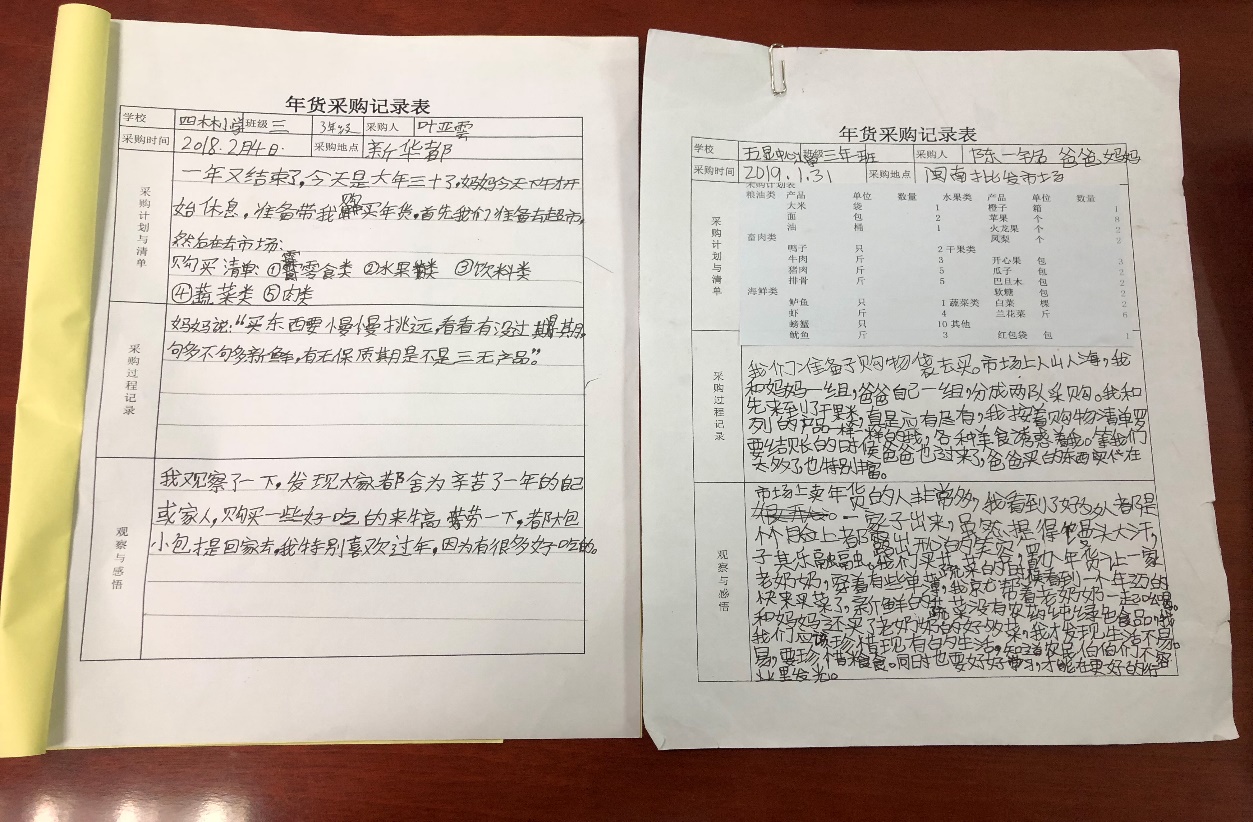 年货采购记录表
学校 四林小学 班级 三 3年级 采购人 叶亚雲
采购时间 2018.2月4日. 采购地点 新华都
采购计划与清单
一年又结束了,今天是大年三十了,妈妈今天下午才开
始休息,准备带我 买年货,首先我们准备去超市,
然后在去市场:
购买清单:①零食类 ②水果类 ③饮料类
④蔬菜类 ⑤肉类
采购过程记录
妈妈说:“买东西要慢慢挑远,看看有没过期,
句多不句多新鲜,有无保质期是不是三无产品”。
观察与感悟
我观察了一下,发现大家都舍为辛苦了一年的自己
或家人,购买一些好吃的来犒劳一下,都大包
小包提回家去,我特别喜欢过年,因为有很多好吃的。
年货采购记录表
学校 五显中心小学 班级 三年 班 采购人 陈一 爸爸、妈妈
采购时间 2019.1.31 采购地点 闽南批发市场
采购计划与清单
采购计划表
粮油类 产品 单位 数量 水果类 产品 单位 数量
大米 袋 1 橙子 箱 1
面 包 2 苹果 个 8
油 桶 1 火龙果 个 2
畜肉类 凤梨 个 2
鸭子 只 2 干果类
牛肉 斤 3 开心果 包 3
猪肉 斤 5 瓜子 包 2
排骨 斤 5 巴旦木 包 2
海鲜类 软糖 包 2
鲈鱼 只 1 蔬菜类 白菜 棵 2
虾 斤 4 兰花菜 斤 6
螃蟹 只 10 其他
鱿鱼 斤 3 红包袋 包 1
采购过程记录
我们准备了购物袋去买。市场上人山人海,我
和妈妈一组,爸爸自己一组,分成两队采购。我和
先来到了干果类,真是应有尽有,我按着购物清单罗
列的产品一样一样的找,各种美食诱惑着我。等我们
要结账的时候爸爸也过来了,爸爸买的东西实在
太多了也特别丰富。
观察与感悟
市场上卖年货的人非常多,我看到了好多人都是
一家子出来,虽然提得满头大汗,
个个脸上都露出开心的笑容,
子其乐融融。我们买蔬菜的时候看到一个年迈的
老奶奶,穿着有些单薄,
快来买菜了,新鲜的蔬菜没有农药的纯绿色食品,我
和妈妈还买了老奶奶的好多菜,我才发现生活不易。
我们应该珍惜现有的生活,知道农民伯伯们不容
易,要珍惜粮食。同时也要好好学习,才能在更好的行
业里发光。